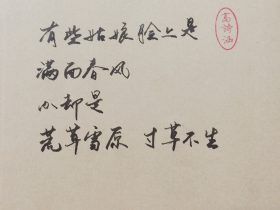 有些姑娘脸上是
满面春风
心却是
荒草雪原 寸草不生
高诗涵